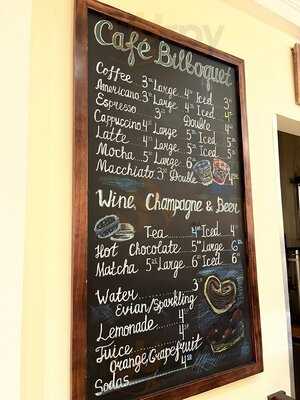 Café Bilboquet
Coffee 3 Large 4 Iced 3
Americano 3 Large 4 Iced 4
Espresso 3 Double 4
Cappuccino 4 Large 5 Iced 5
Latte 4 Large 5 Iced 5
Mocha 5 Large 6 Iced 5
Macchiato 3 Double 4
Wine, Champagne & Beer
Tea 4 Iced 4
Hot Chocolate 5 Large 6
Matcha 5 Large 6 Iced 6
Water 3
Evian/Sparkling
Lemonade 4
Juice 4
Orange, Grapefruit
Sodas 4